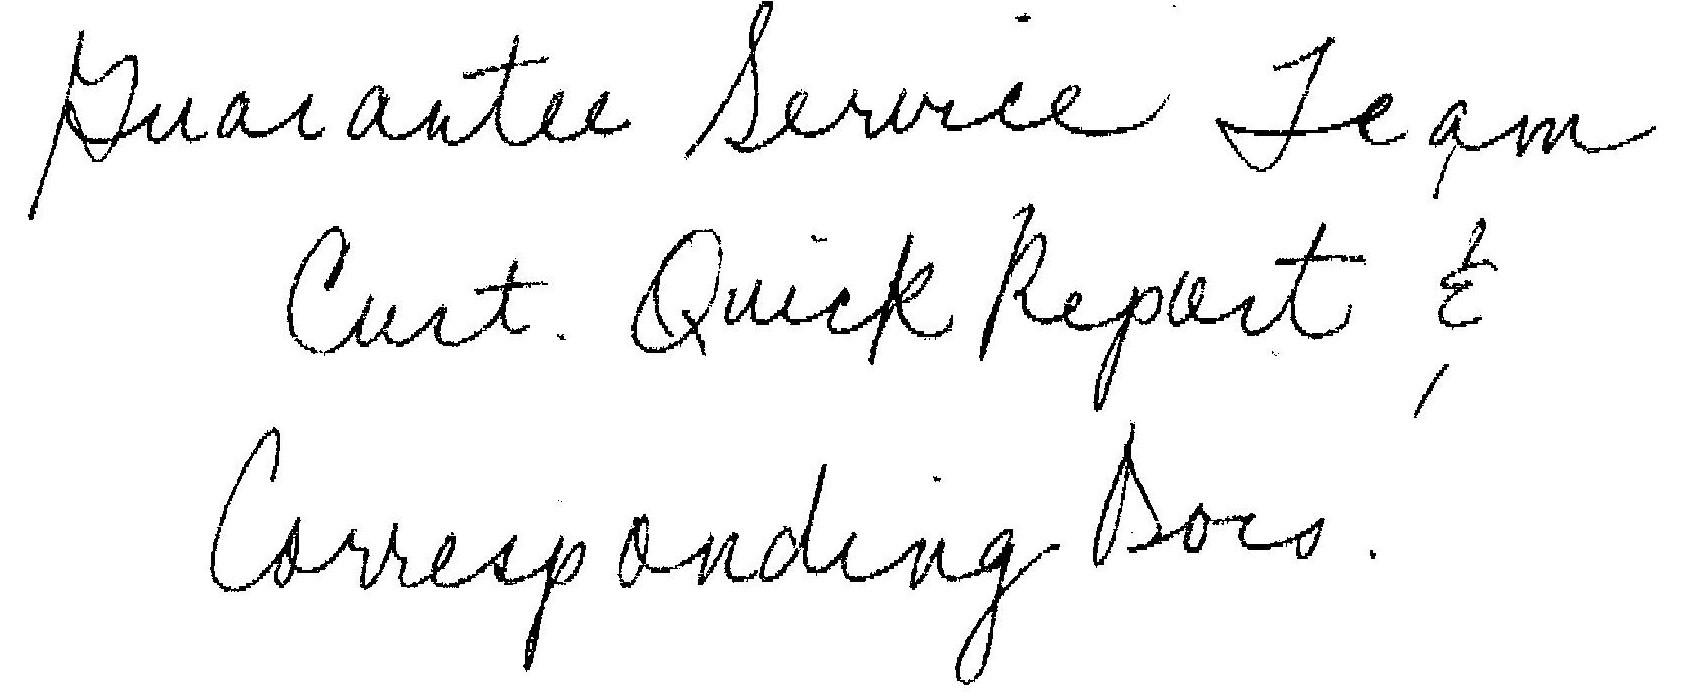 Guarantee Service Team
Cust. Quick Report &
Corresponding Docs.